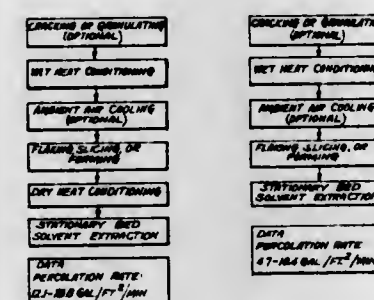 CRACKING OR GRANULATING
(OPTIONAL)
WET HEAT CONDITIONING
AMBIENT AIR COOLING
(OPTIONAL)
FLAKING, SLICING, OR
FORMING
DRY HEAT CONDITIONING
STATIONARY BED
SOLVENT EXTRACTION
DATA
PERCOLATION RATE:
GAL/FT²/MIN
CRACKING OR GRANULATI
(OPTIONAL)
WET HEAT CONDITIONING
AMBIENT AIR COOLING
(OPTIONAL)
FLAKING, SLICING, OR
FORMING
STATIONARY BED
SOLVENT EXTRACTION
DATA
PERCOLATION RATE
GAL/FT²/MIN